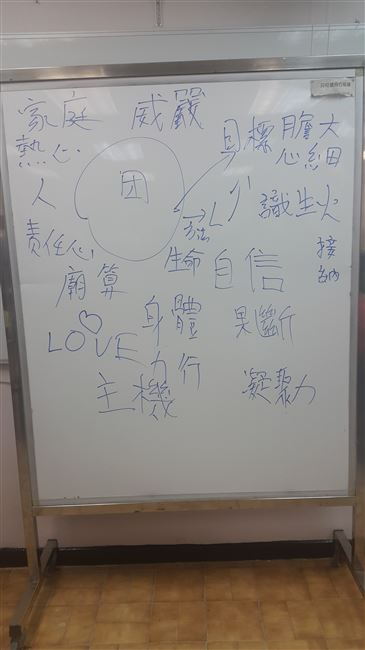 家庭
威嚴
目標
膽大
心細
熱心
团
人
識生火
方法
責任心
生命
自信
接納
廟算
身體
果斷
LOVE
力行
主機
凝聚力